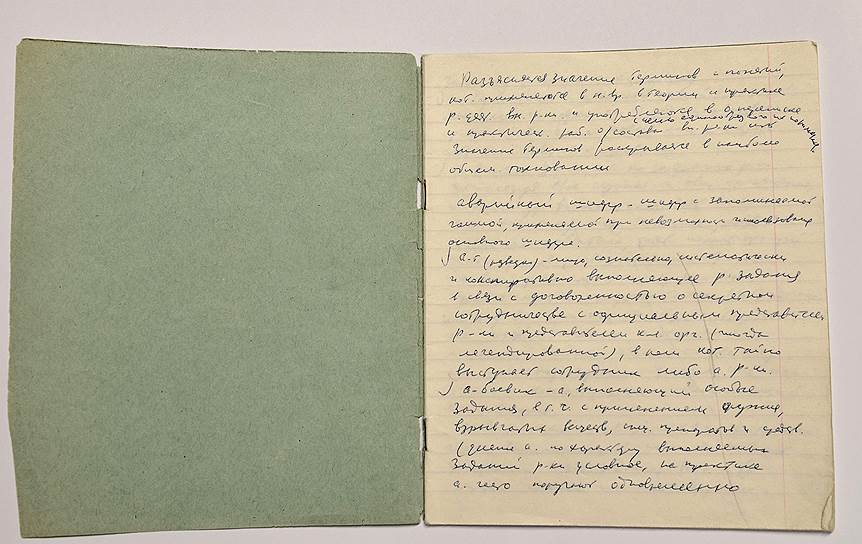 Разъясняется значение терминов и понятий,
кот. применяются в н. вр. в теории и практике
р. деят. вн. р-ки и употребляются в оперативн.
(с целью единообразного их понимания)
и практическ. раб. о/состава вн. р-ки
Значение терминов раскрывается в наиболее
общем толковании
аварийный шифр – шифр с запоминаемой
гаммой, применяемой при невозможности использования
основного шифра.
а-т (разведки) – лицо, сознательно, систематически
и конспиративно выполняющее р. задания
в связи с договоренностью о секретном
сотрудничестве с официальным представителем
р-ки и представителем к-л. орг. (иногда
легендированной), в кот. тайно
выступает сотрудник либо а. р-ки.
а-боевик – а, выполняющий особые
задания, в т. ч. с применением оружия,
взрывчатых веществ, спец. препаратов и средств.
(деление а. по характеру выполняемых
заданий р-ки условное, на практике
а. часто поручают одновременно